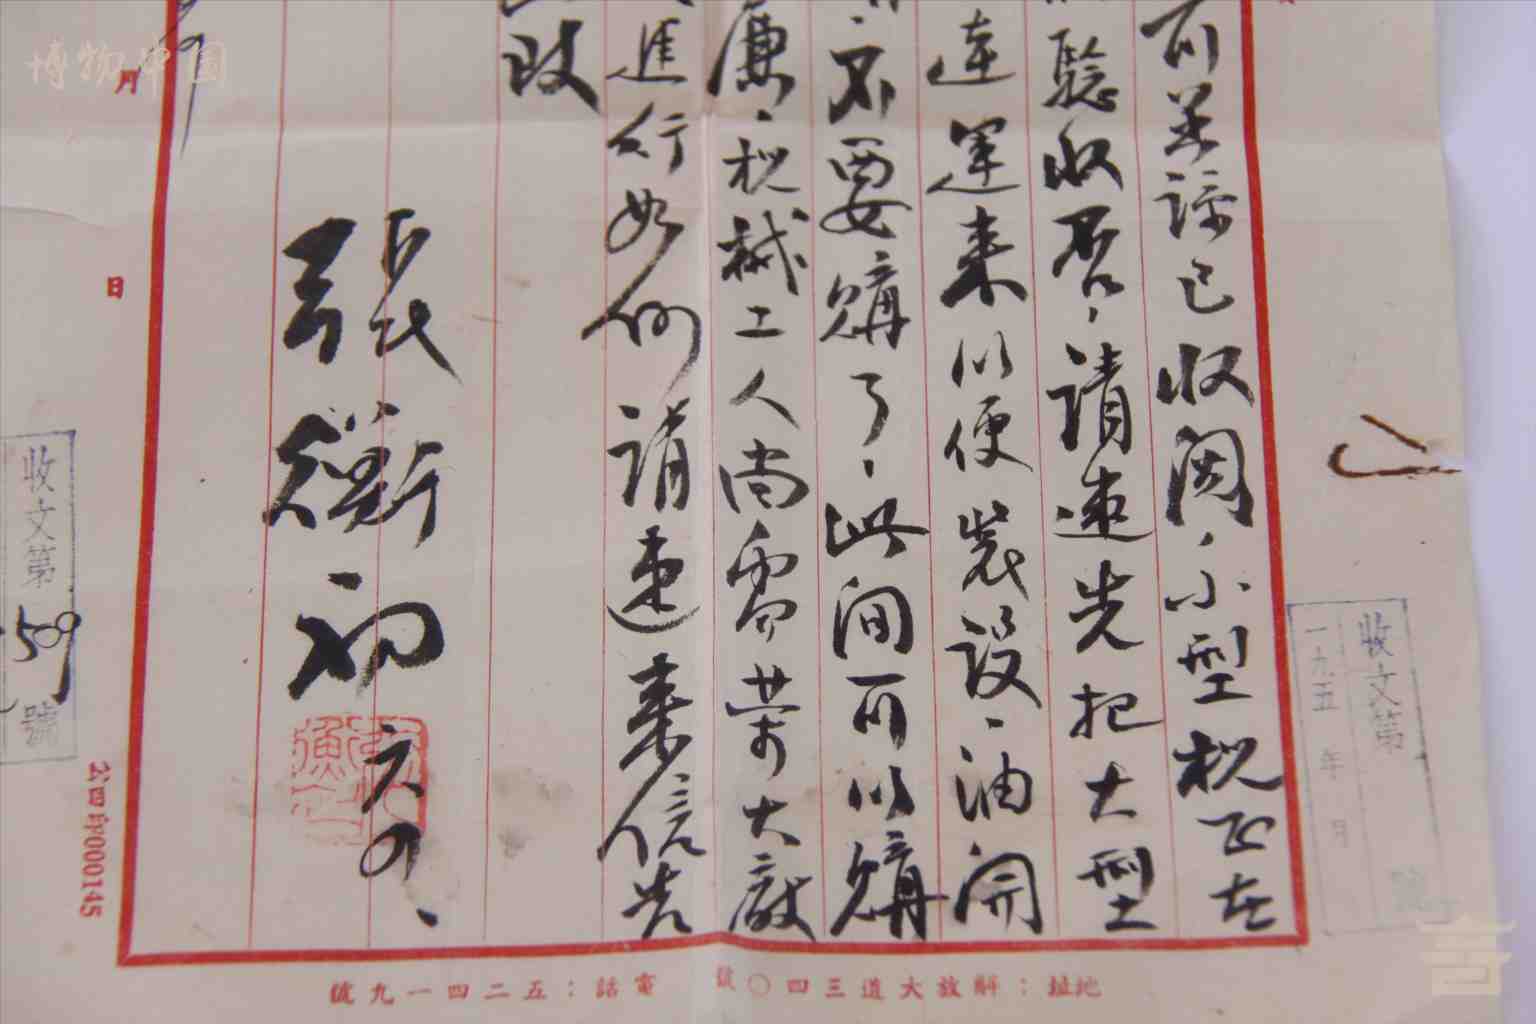 收文第
號
一九五 年 月
收阅、小型机正在
验收否、请速先把大型
连运来以便装设、油开
不要購了、此间可以購
廉、机械工人尚需荣大厰
進行如何请速来信告
政
張衡初
六
月
日
收文第
509
號
印000145
地址：解放大道三四〇號
電話：五二四一九號
博物中国